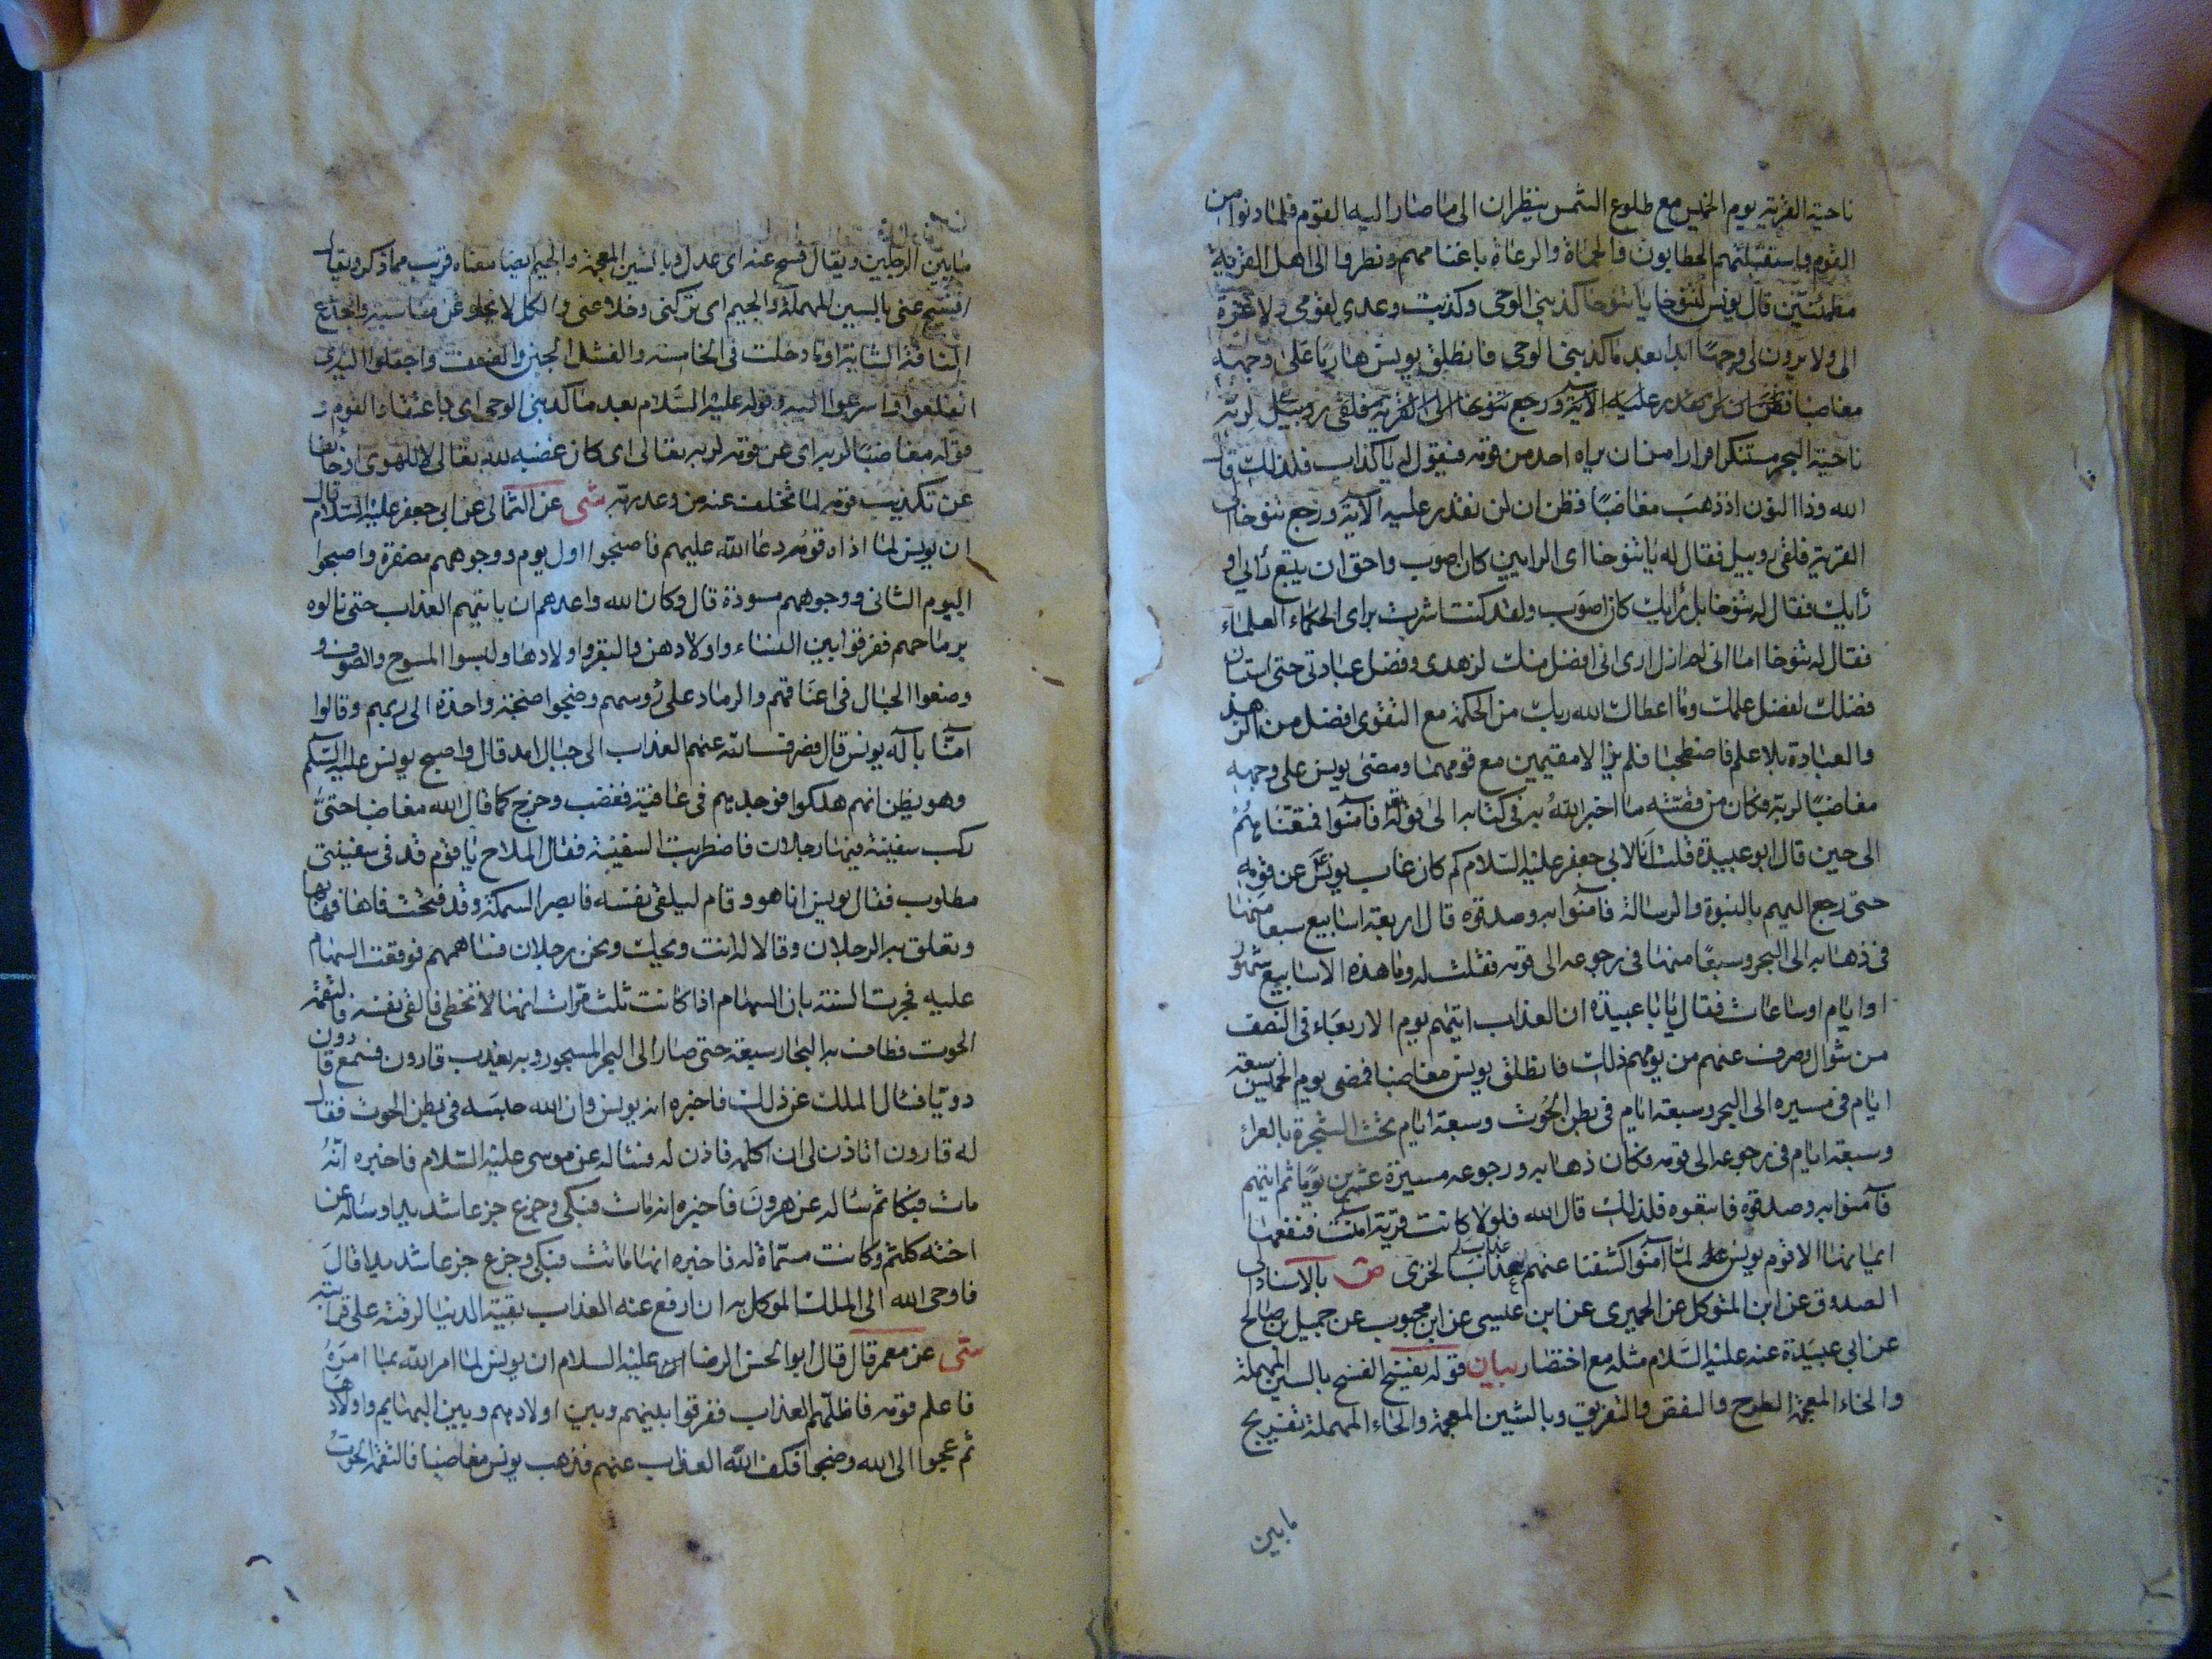 ناحية القرية يوم الخميس مع طلوع الشمس ينظران الى ما صار اليه القوم فلما دنوا من
القوم واستقبلتهم الحطابون والحماة والرعاة باغنامهم ونظروا الى اهل القرية
مطمئنين قال يونس لتنوخا يا تنوخا كذبنى الوحى وكذبت وعدى لقومى ولا عزة
لى ولا يرون لى وجها ابدا بعد ما كذبنى الوحى فانطلق يونس هاربا على وجهه
مغاضبا فظن ان لن نقدر عليه الآية ورجع تنوخا الى القرية فلقى روبيل لربه
ناحية البحر مستنكرا فرارا من ان يراه احد من قومه فيقول له يا كذاب فلذلك قال
الله وذا النون اذ ذهب مغاضبا فظن ان لن نقدر عليه الآية ورجع تنوخا الى
القرية فلقى روبيل فقال له يا تنوخا اى الرايين كان اصوب واحق ان يتبع رأيى او
رأيك فقال له تنوخا بل رأيك كان اصوب ولقد كنت اشرت براى الحكماء العلماء
فقال له تنوخا اما انى لم ازل ارى انى افضل منك لزهدى وفضل عبادتى حتى استبان
فضلك لفضل علمك وما اعطاك الله ربك من الحكمة مع التقوى افضل من الزهد
والعبادة بلا علم فاصطحبا فلم يزالا مقيمين مع قومهما ومضى يونس على وجهه
مغاضبا لربه فكان من قصته ما اخبر الله به فى كتابه الى قوله فآمنوا فمتعناهم
الى حين قال ابو عبيدة قلت لابى جعفر عليه السلام كم كان غاب يونس عن قومه
حتى رجع اليهم بالنبوة والرسالة فآمنوا به وصدقوه قال اربعة اسابيع سبعا منها
فى ذهابه الى البحر وسبعا منها فى رجوعه الى قومه فقلت له وما هذه الاسابيع شهور
او ايام او ساعات فقال يا با عبيدة ان العذاب اتيهم يوم الاربعاء فى النصف
من شوال وصرف عنهم من يومهم ذلك فانطلق يونس مغاضبا فمضى يوم الخميس سبعة
ايام فى مسيره الى البحر وسبعة ايام فى بطن الحوت وسبعة ايام تحت الشجرة بالعراء
وسبعة ايام فى رجوعه الى قومه فكان ذهابه ورجوعه مسيرة عشرين يوما ثم اتيهم
فآمنوا به وصدقوه فاتبعوه فلذلك قال الله فلولا كانت قرية آمنت فنفعها
ايمانها الا قوم يونس لما آمنوا كشفنا عنهم عذاب الخزى ص بالاسناد الى
الصدوق عن ابن المتوكل عن الحميرى عن ابن عيسى عن ابن محبوب عن جميل بن صالح
عن ابى عبيدة عنه عليه السلام مثله مع اختصار بيان قوله الفسخ بالسين المهملة
والخاء المعجمة الطرح والنقض والتفريق وبالشين المعجمة والحاء المهملة تفريج
مابين
مابين الرجلين ويقال فسح عنه اى عدل وبالشين المعجمة والجيم ايضا معناه قريب مما ذكر ويقال
افسج عنى بالسين المهملة والجيم اى تركنى وخلا عنى والكل لا يخلو عن مناسبة والجذع
الناقة الشابة اوما دخلت فى الخامسة والفشل الجبن والضعف واجفلوا اليه اى
انقلعوا واسرعوا اليه وقوله عليه السلام بعد ما كذبنى الوحى اى باعتقاد القوم و
قوله مغاضبا لربه اى عن قومه لربه تعالى اى كان غضبه لله تعالى لا للهوى او خائفا
عن تكذيب قومه لما تخلف عنه من وعد ربه شى عن الثمالى عن ابى جعفر عليه السلام قال
ان يونس لما اذاه قومه دعا الله عليهم فاصبحوا اول يوم ووجوههم مصفرة واصبحوا
اليوم الثانى ووجوههم مسودة قال وكان الله واعدهم ان ياتيهم العذاب حتى نالوه
برماحهم ففرقوا بين النساء واولادهن والبقر واولادها ولبسوا المسوح والصوف و
وضعوا الحبال فى اعناقهم والرماد على رؤسهم وضجوا ضجة واحدة الى ربهم وقالوا
آمنا باله يونس قال فصرف الله عنهم العذاب الى جبال امد قال واصبح يونس عليه السلم
وهو يظن انهم هلكوا فوجدهم فى عافية فغضب وخرج كما قال الله مغاضبا حتى
ركب سفينة فيها رجلان فاضطربت السفينة فقال الملاح يا قوم قد فى سفينتى
مطلوب فقال يونس انا هو وقام ليلقى نفسه فابصر السمكة وقد فتحت فاها فهابها
وتعلق به الرجلان وقالا له انت ويحك ونحن رجلان فساهمهم فوقعت السهام
عليه فجرت السنة بان السهام اذا كانت ثلث مرات انها لا تخطى فالقى نفسه فالتقمه
الحوت فطاف به البحار سبعة حتى صار الى البحر المسجور وبه يعذب قارون فسمع قارون
دويا فسال الملك عن ذلك فاخبره انه يونس وان الله حبسه فى بطن الحوت فقال
له قارون اتاذن لى ان اكلمه فاذن له فساله عن موسى عليه السلام فاخبره انه
مات فبكا ثم ساله عن هرون فاخبره انه مات فبكى وجزع جزعا شديدا وساله عن
اخته كلثم وكانت مسماة له فاخبره انها ماتت فبكى وجزع جزعا شديدا قال
فاوحى الله الى الملك الموكل به ان ارفع عنه العذاب بقية الدنيا لرقته على قرابته
شى عن معمر قال قال ابو الحسن الرضا عليه السلام ان يونس لما امر الله بما امره
فاعلم قومه فاظلهم العذاب ففرقوا بينهم وبين اولادهم وبين البهايم واولادها
ثم عجوا الى الله وضجوا فكف الله العذاب عنهم فذهب يونس مغاضبا فالتقمه الحوت